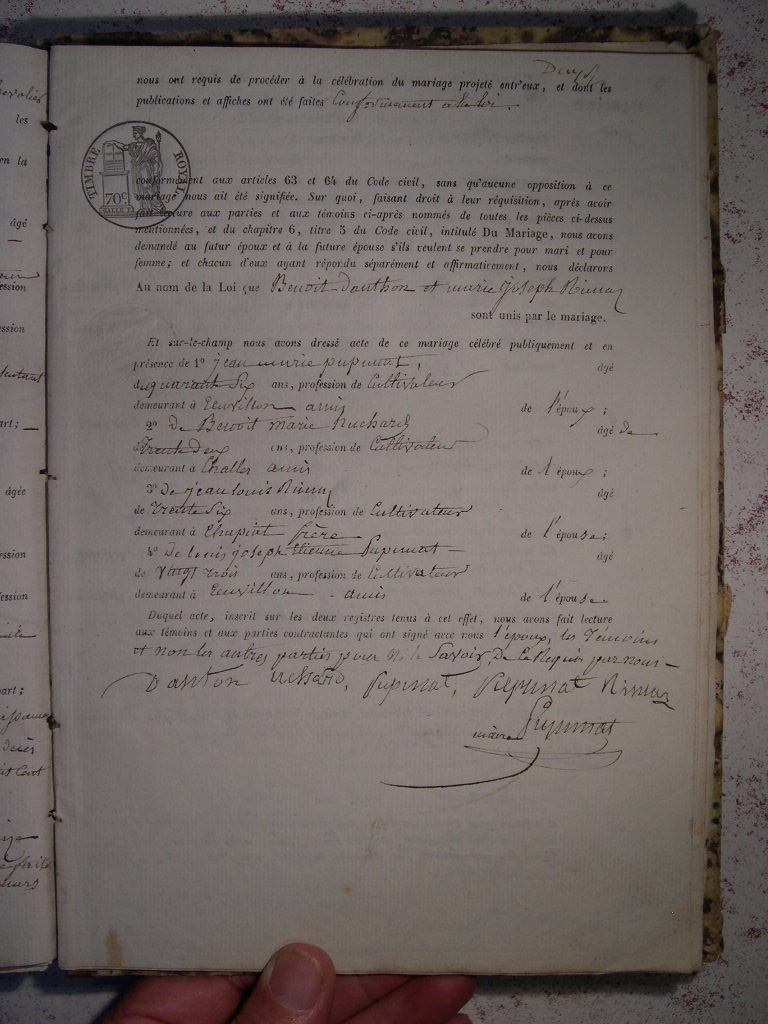 nous ont requis de procéder à la célébration du mariage projeté entr'eux, et dont les
publications et affiches ont été faites Conformément a la loi.
TIMBRE ROYAL
70c
conformément aux articles 63 et 64 du Code civil, sans qu'aucune opposition à ce
mariage nous ait été signifiée. Sur quoi, faisant droit à leur réquisition, après avoir
fait lecture aux parties et aux témoins ci-après nommés de toutes les pièces ci-dessus
mentionnées, et du chapitre 6, titre 5 du Code civil, intitulé Du Mariage, nous avons
demandé au futur époux et à la future épouse s'ils veulent se prendre pour mari et pour
femme; et chacun d'eux ayant répondu séparément et affirmativement, nous déclarons
Au nom de la Loi que Benoit Danthon et marie Joseph Rimaz
sont unis par le mariage.
Et sur-le-champ nous avons dressé acte de ce mariage célébré publiquement et en
présence de 1o jean marie pupunat, âgé
de quarant Six ans, profession de Cultivateur
demeurant à amis de l'époux;
2o de Benoit Marie âgé de
trente deux ans, profession de Cultivateur
demeurant à Challes amis de l'époux;
3o de jean louis Rimaz âgé
de trente Six ans, profession de Cultivateur
demeurant à Chapiat frère de l'épouse;
4o de louis joseph Etienne Pupunat âgé
de vingt trois ans, profession de Cultivateur
demeurant à amis de l'épouse
Duquel acte, inscrit sur les deux registres tenus à cet effet, nous avons fait lecture
aux témoins et aux parties contractantes qui ont signé avec nous l'époux, les témoins
et non les autres parties pour ne le Savoir, De Ce Requis par nous
Danton Pupunat, Pupunat Rimaz
maire Pupunat
les
en la
âgé
ession
ession
art;
âgée
ession
ession
part;